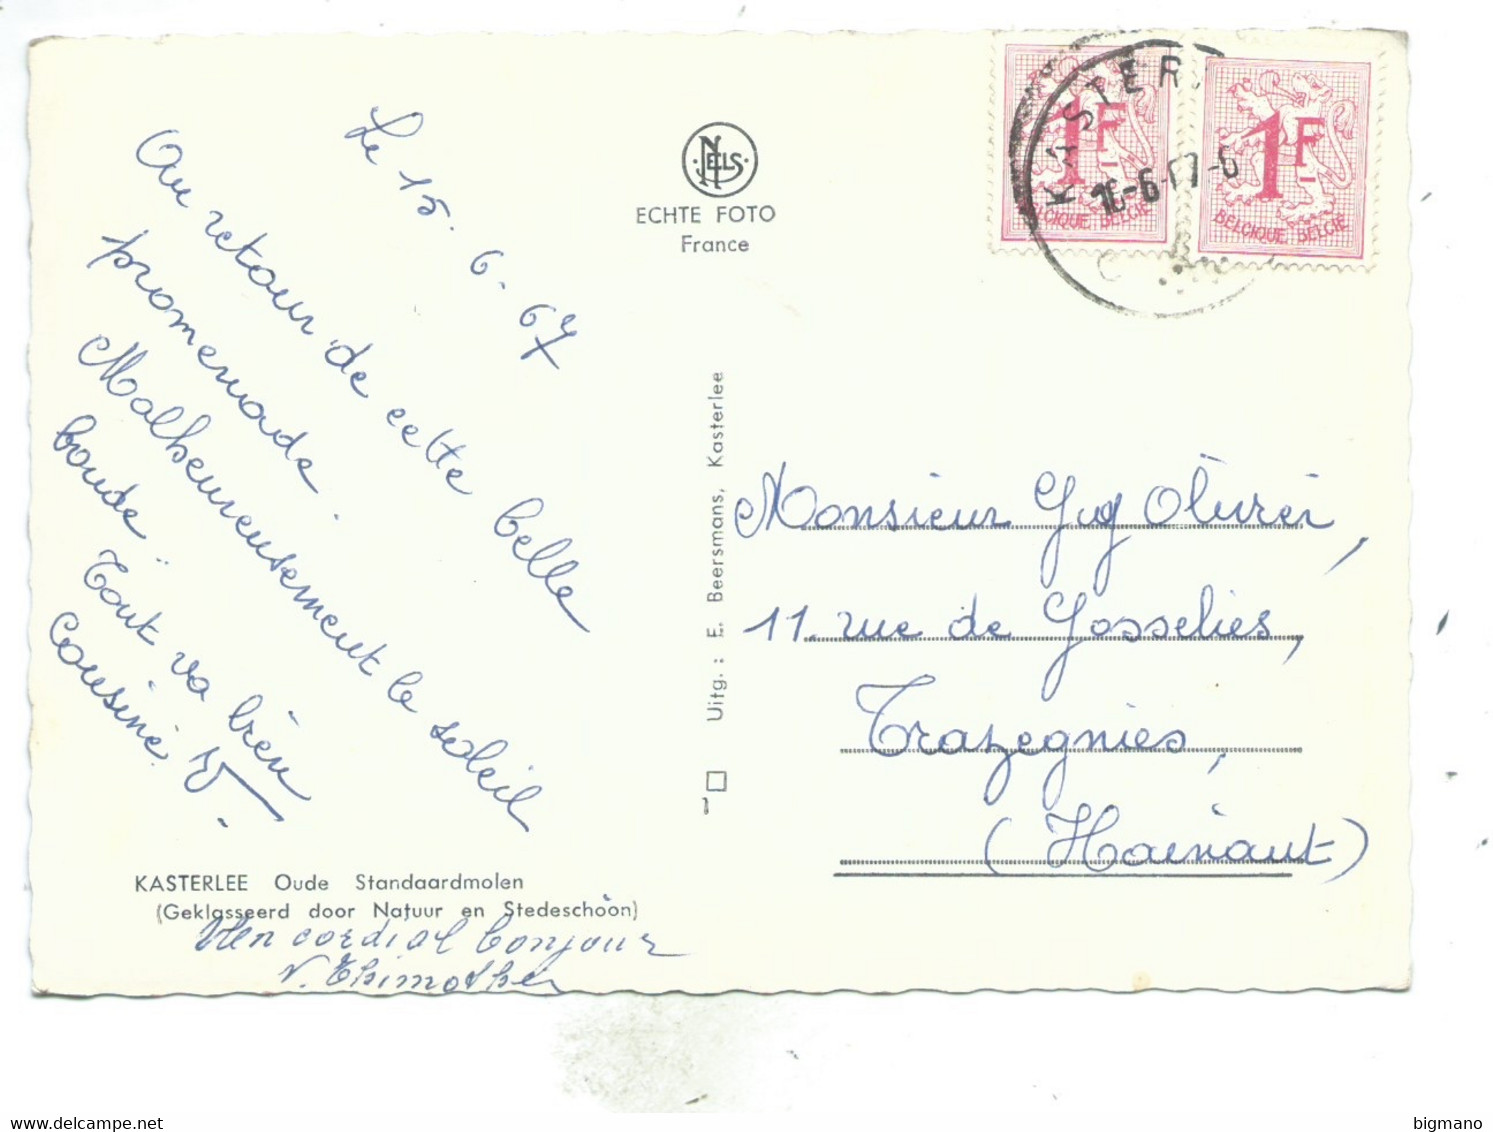 Le 15.6.67
Au retour de cette belle
promenade.
Malheureusement le soleil
boude.
Tout va bien
Cousine
KASTERLEE Oude Standaardmolen
(Geklasseerd door Natuur en Stedeschoon)
Un cordial bonjour
NELS
ECHTE FOTO
France
Uitg.: E. Beersmans, Kasterlee
1F
BELGIQUE BELGIE
1F
BELGIQUE BELGIE
KASTER
16-6-67-6
Monsieur Guy Olivier,
11. rue de Gosselies,
Trazegnies,
(Hainaut)
bigmano